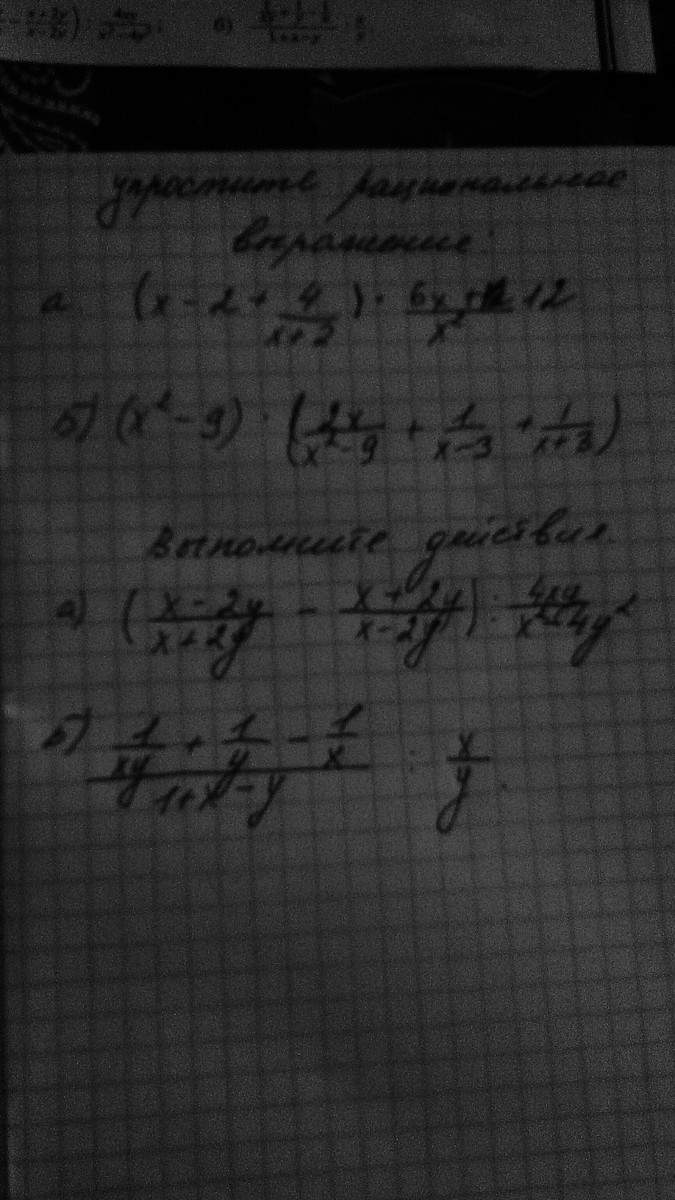 - \frac{x+2y}{x-2y}) : \frac{4xy}{x²-4y²}; б) \frac{\frac{1}{xy}+\frac{1}{y}-\frac{1}{x}}{1+x-y} : \frac{x}{y}
упростите рациональное
выражение:
а. (x - 2 + \frac{4}{x+2}) · \frac{6x+12}{x²}
б) (x² - 9) · (\frac{2x}{x²-9} + \frac{1}{x-3} + \frac{1}{x+3})
Выполните действия.
а) (\frac{x-2y}{x+2y} - \frac{x+2y}{x-2y}) : \frac{4xy}{x²-4y²}
б) \frac{\frac{1}{xy}+\frac{1}{y}-\frac{1}{x}}{1+x-y} : \frac{x}{y}.